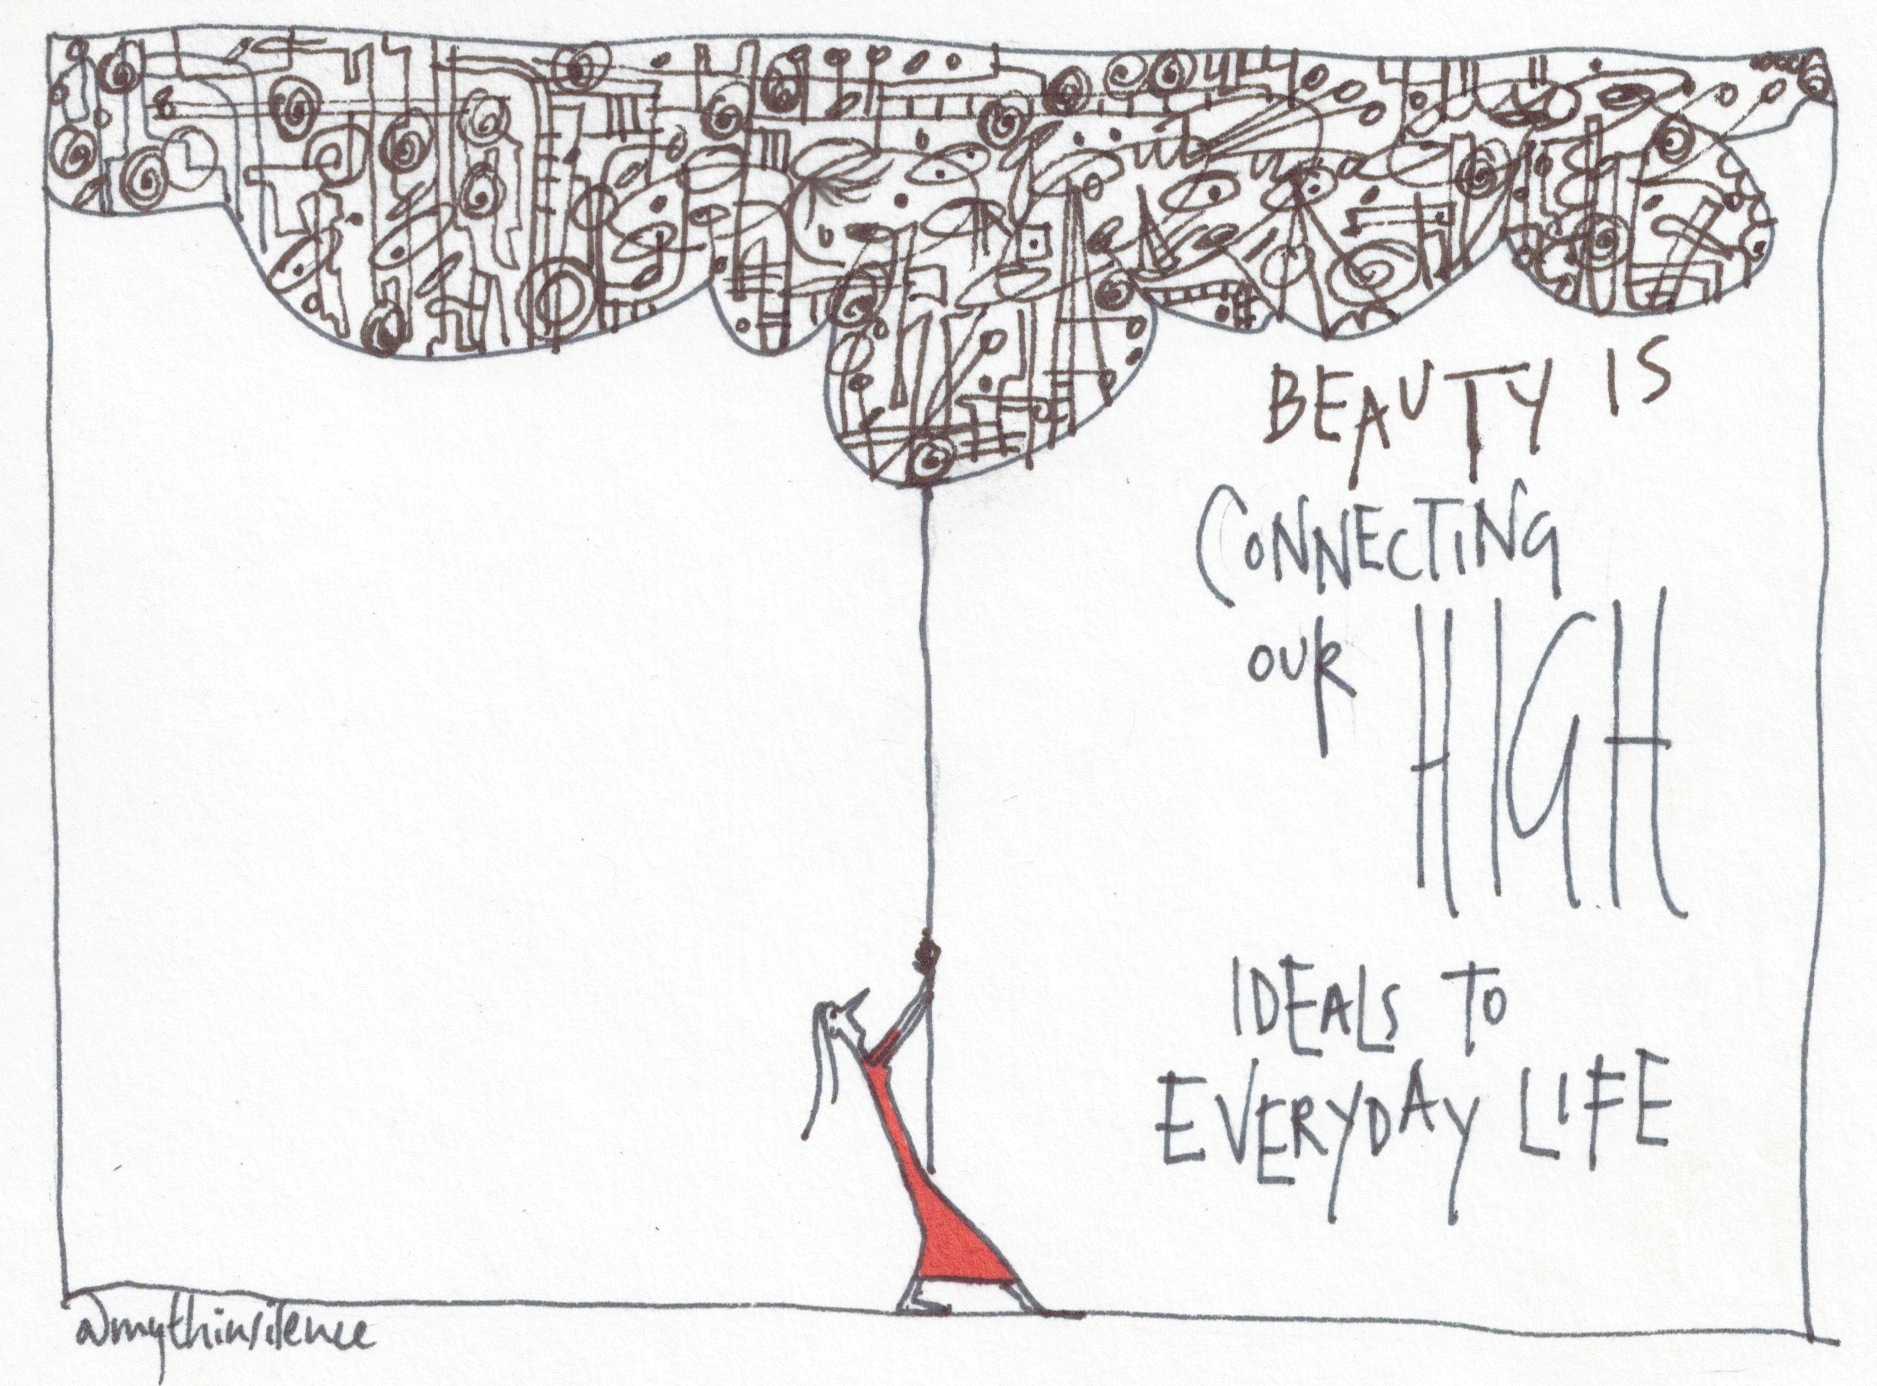 BEAUTY IS
CONNECTING
OUR HIGH
IDEALS TO
EVERYDAY LIFE
@mythinsilence